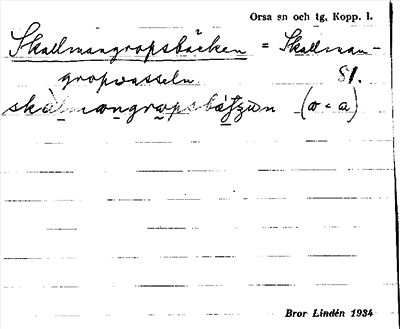 Orsa sn och tg, Kopp. l.
Skallmangropsbäcken = Skallman-
gropvasseln 81.
skàlmangrapsbáʃzun (w = a)
Bror Lindén 1934